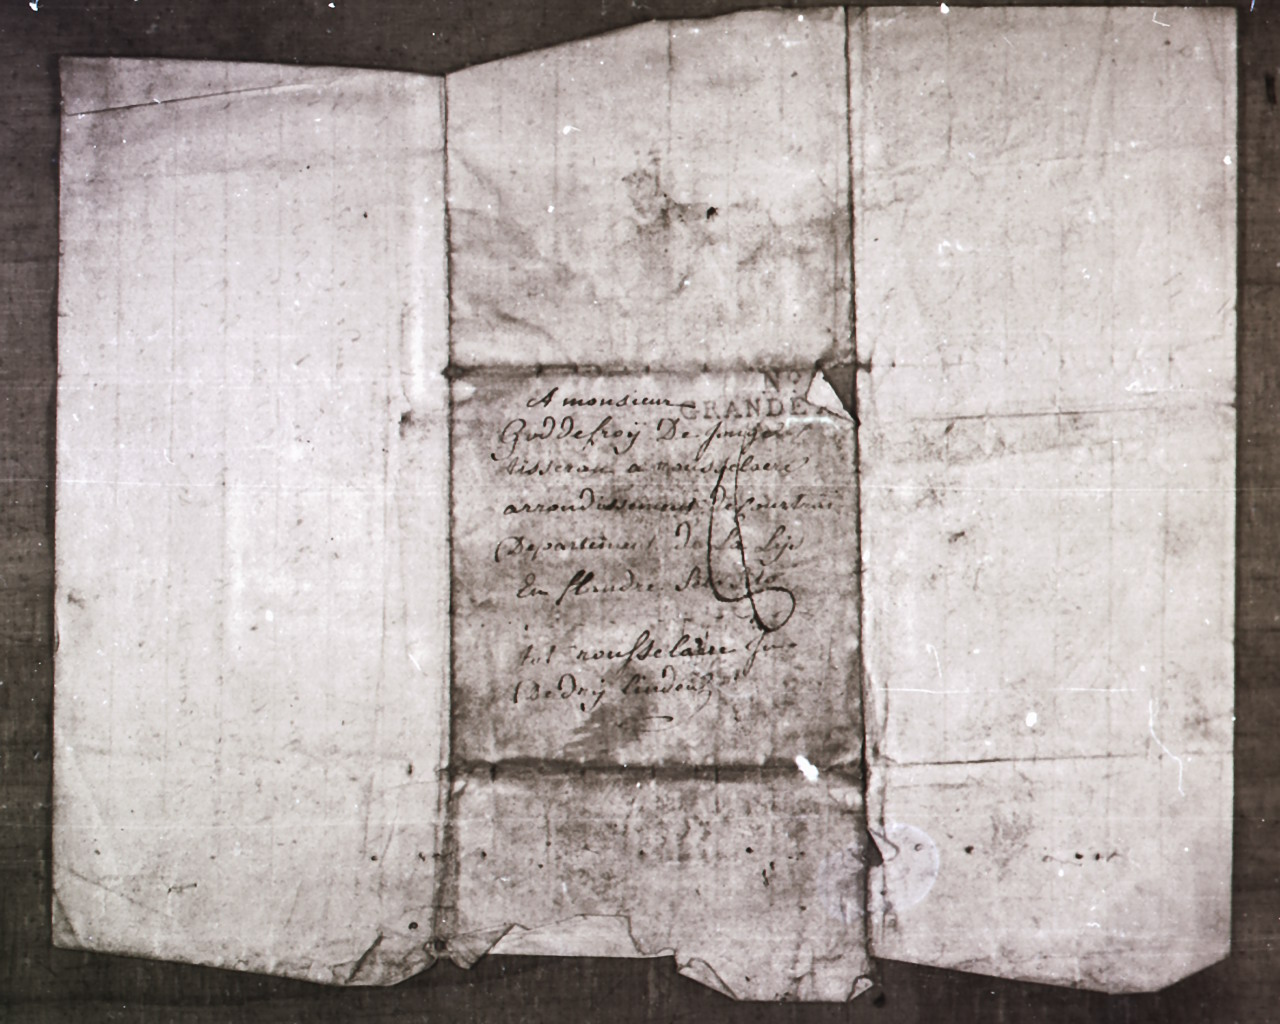 No
GRANDE
A monsieur
Goddefroij De
tisseran a rousselaere
arrondissement de Courtrai
Departement de La Lijs
En flandre
tot rousselaere
Bedrij